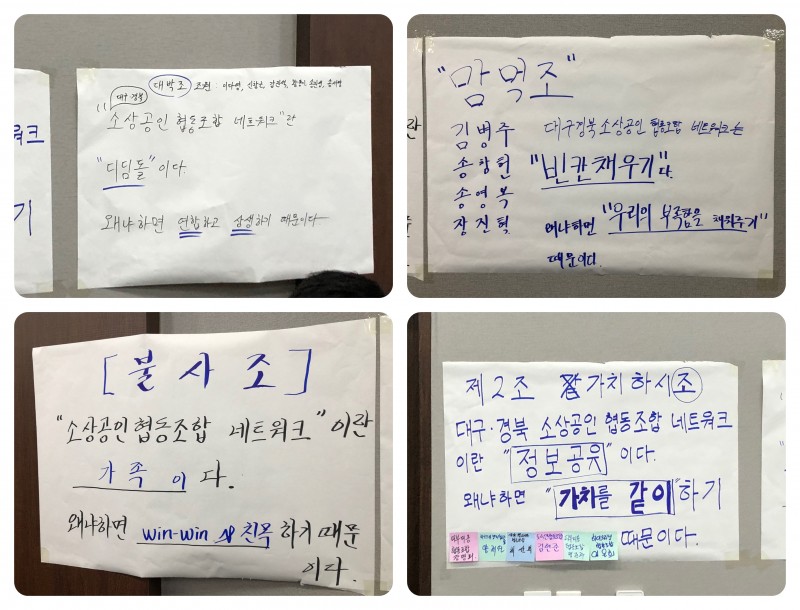 대박조 조원:
대구·경북
"소상공인 협동조합 네트워크"란
"디딤돌"이다.
왜냐하면 연합하고 상생하기 때문이다
"맘먹조"
김병주
송창헌
송영복
장진혁
대구경북소상공인 협동조합 네트워크는
"빈칸채우기"다.
왜냐하면 "우리의 부족함을 채워주기"
때문이다.
[불사조]
"소상공인 협동조합 네트워크"이란
가족이다.
왜냐하면 win-win & 친목 하기 때문
이다.
제2조 가치하시조
대구·경북 소상공인 협동조합 네트워크
이란 "정보공유"이다.
왜냐하면 "가치를 같이"하기
때문이다.